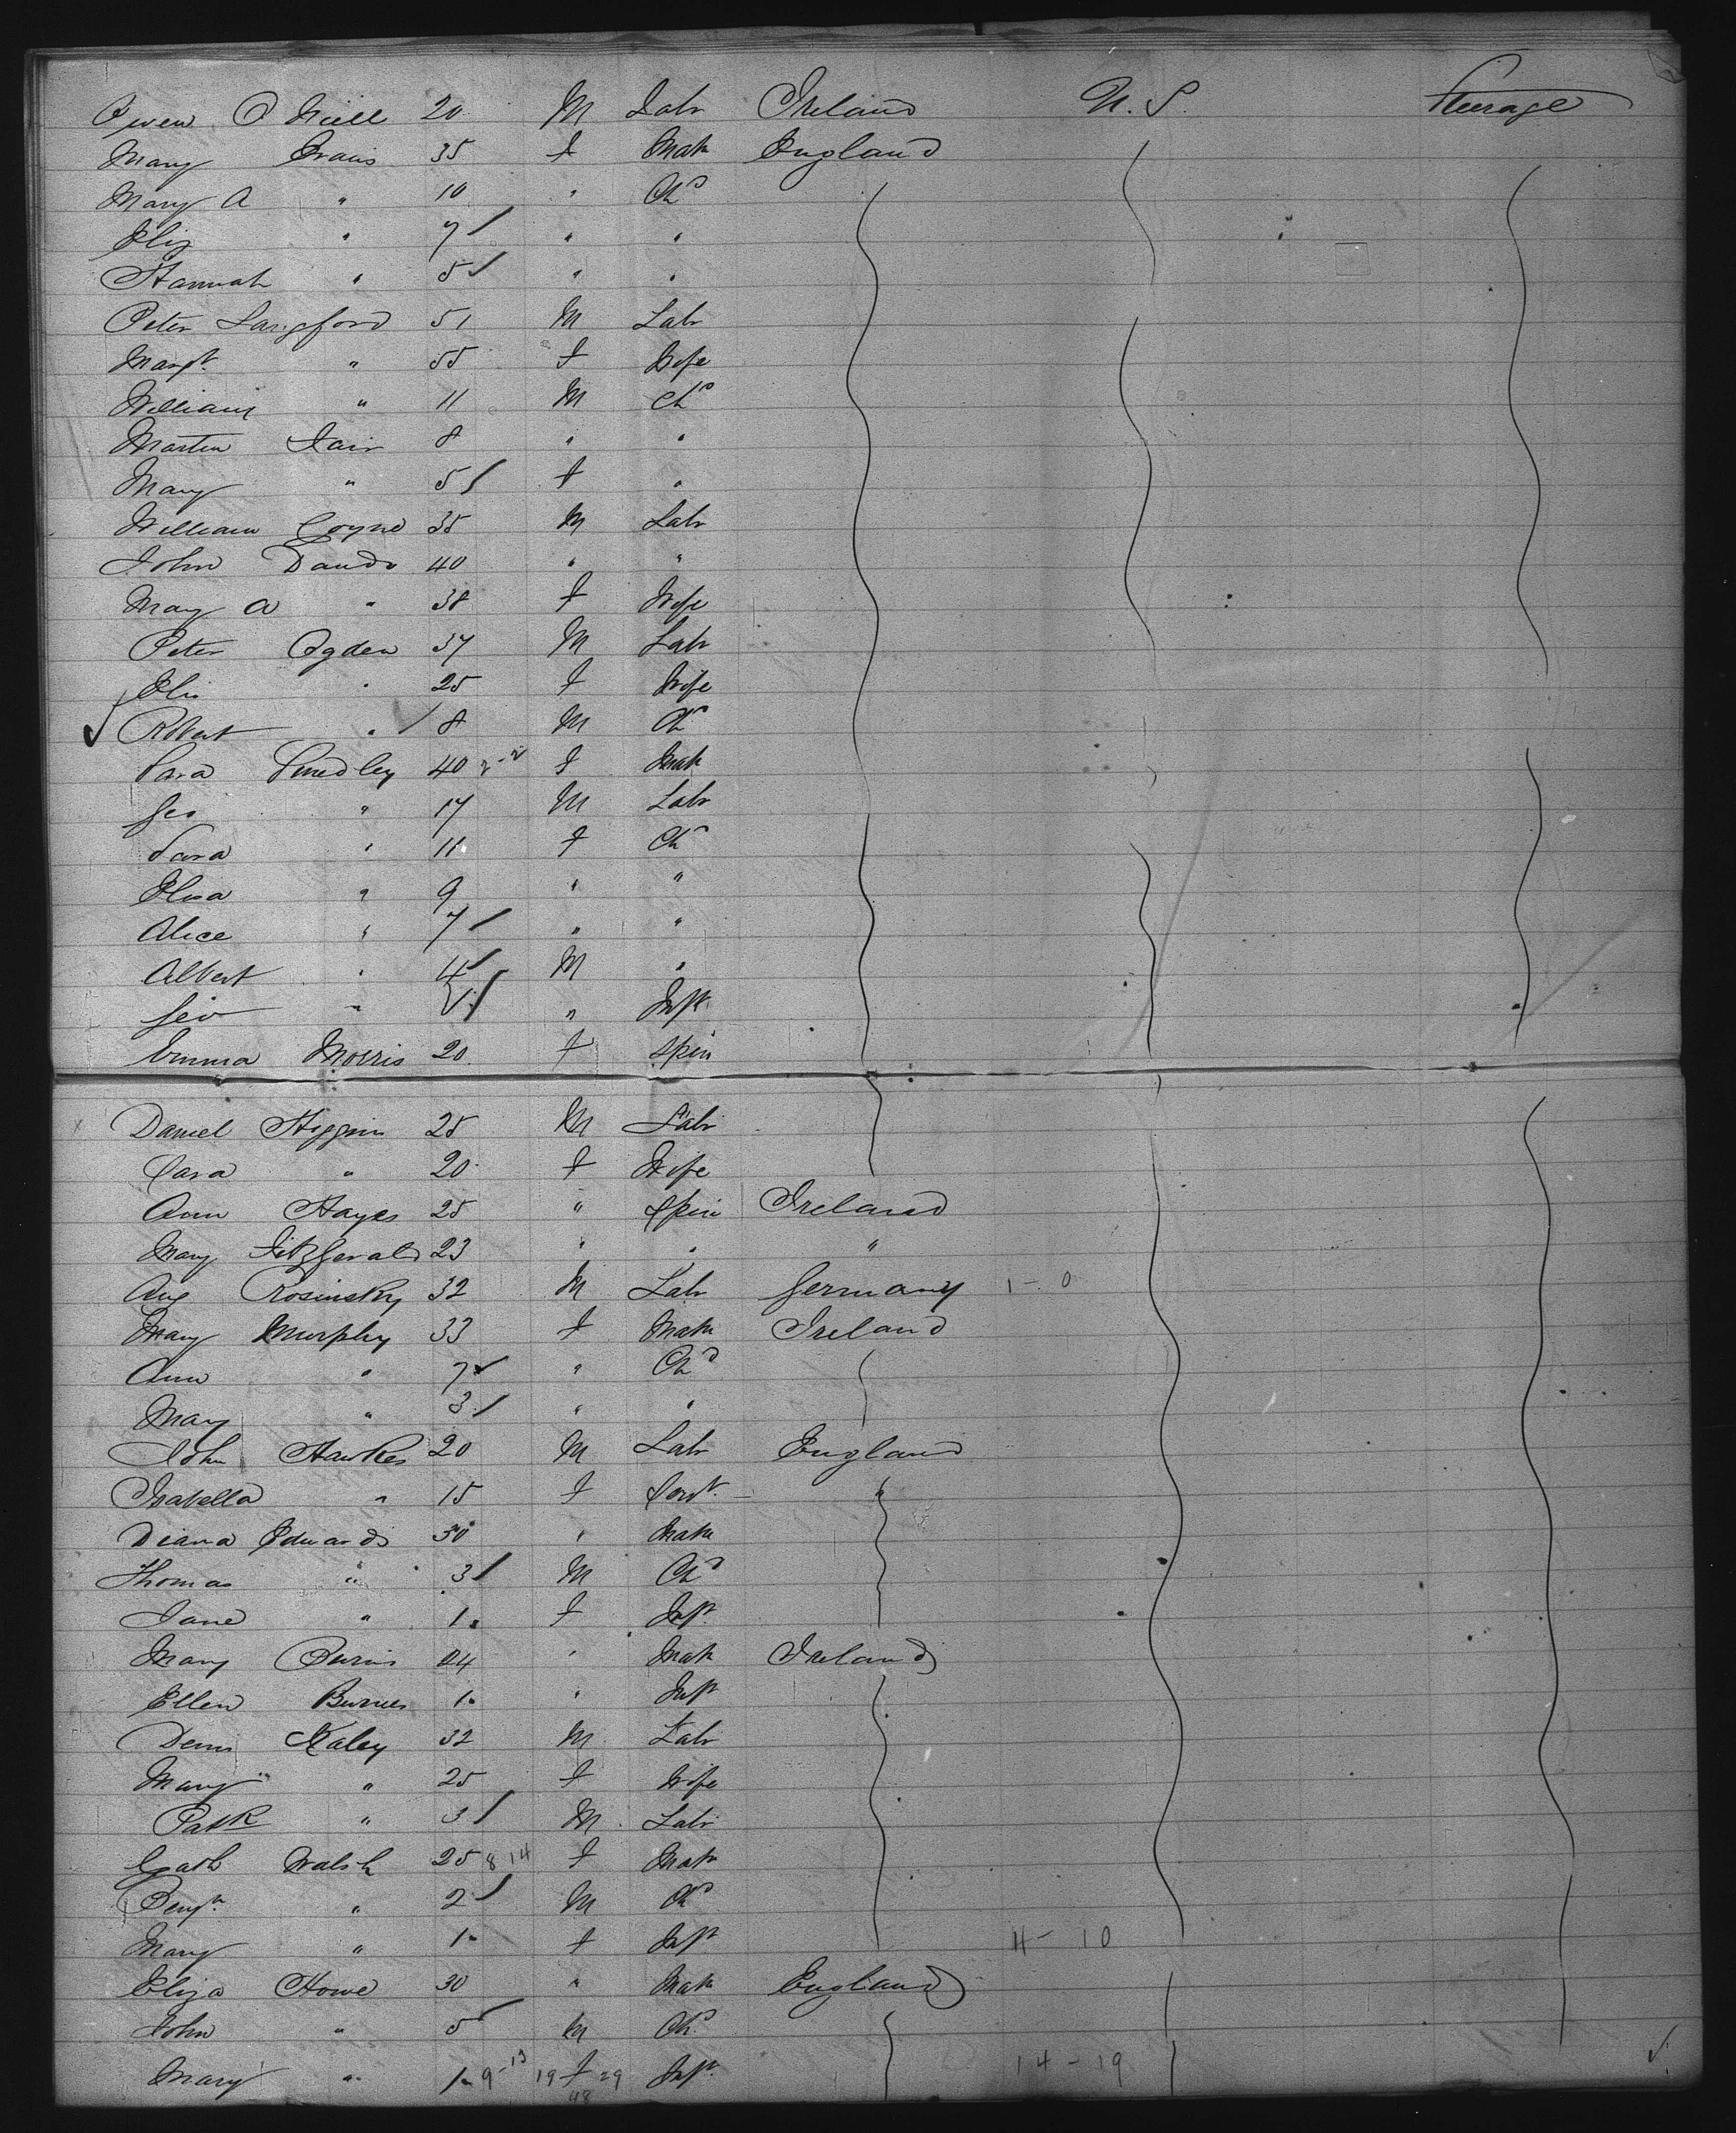 Owen O Neill 20 M Labr Ireland U.S. Steerage
Mary 35 f Matn England
Mary A " 10 " Chd
Eliz " 7 " "
Hannah " 5 " "
Peter Langford 51 M Labr
Margt " 55 f Wife
William " 11 M Chd
Martin 8 " "
Mary " 5 f "
William Coyne 35 M Labr
John 40 " "
Mary A " 38 f Wife
Peter Ogden 37 M Labr
Eliz " 25 f Wife
Robert " 8 M Chd
Sara Smedley 40 f Matn
Geo " 17 M Labr
Sara " 11 f Chd
Elisa " 9 " "
Alice " 7 " "
Albert " 4 M "
Geo " " Inft
Emma Morris 20 f Spin
Daniel Higgins 25 M Labr
Sara " 20 f Wife
Ann Hayes 25 " Spin Ireland
Mary Fitzgerald 23 " " "
Aug Rosinsky 32 M Labr Germany 1 - 0
Mary Murphy 33 f Matn Ireland
Ann " 7 " Chd
Mary " 3 " "
John Hawkes 20 M Labr England
Isabella " 15 f Servt
Diana Edwards 30 " Matn
Thomas " 3 M Chd
Jane " 1 f Inft
Mary Burns 24 " Matn Ireland
Ellen Burnes 1 " Inft
Denis Kaley 32 M Labr
Mary " 25 f Wife
Patk " 3 M Labr
Cath Walsh 25 8 14 f Matn
Benjn " 2 M Chd
Mary " 1 f Inft 11 - 10
Eliza Howe 30 " Matn England
John " 5 M Chd
Mary " 1 9-13 19 f 29 Inft 14 - 19
48